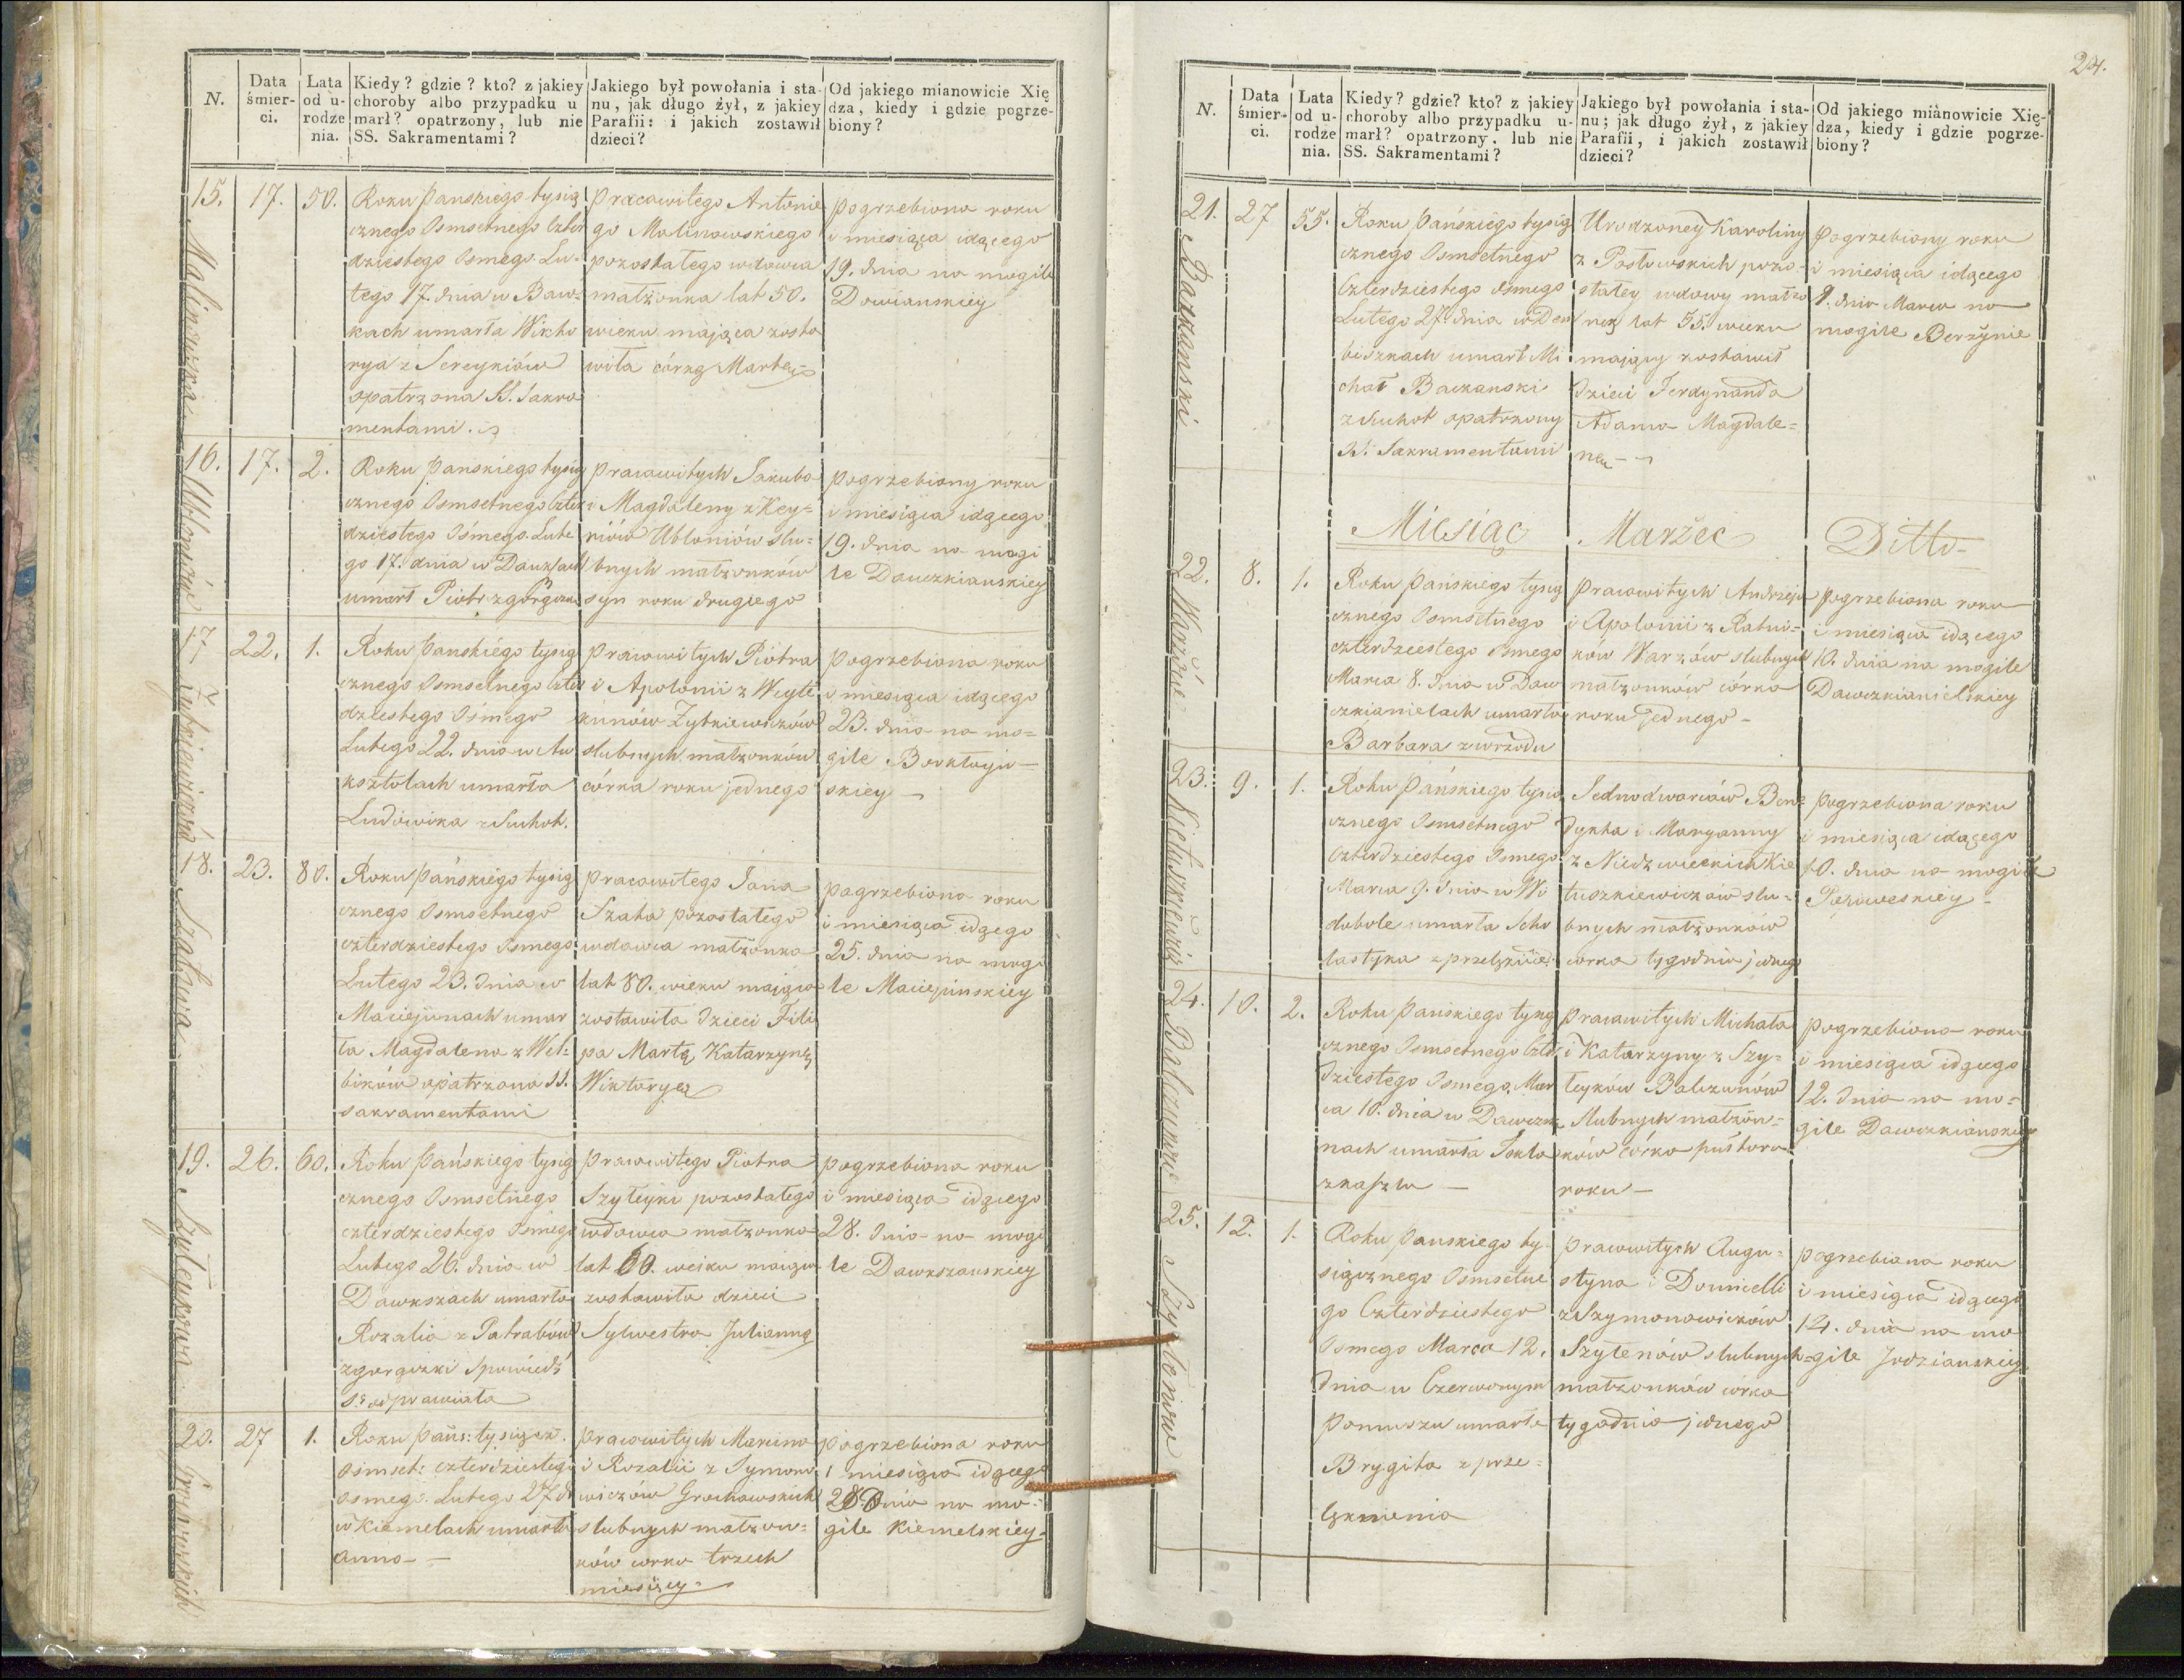 N.
Data śmier-ci.
Lata od u-rodze nia.
Kiedy? gdzie? kto? z jakiey
choroby albo przypadku u
marł? opatrzony, lub nie
SS. Sakramentami?
Jakiego był powołania i sta-
nu, jak długo żył, z jakiey
Parafii: i jakich zostawił
dzieci?
Od jakiego mianowicie Xię
dza, kiedy i gdzie pogrze-
biony?
15.
17.
50.
Malinowska
Roku Pańskiego tysią
cznego Osmsetnego Czter
dziestego Osmego Lu-
tego 17. dnia w Baw-
kach umarła Wikto
rya z Sereykiów
opatrzona SS. Sakra
mentami.
Pracowitego Antonie
go Malinowskiego
pozostałego wdowca
małżonka lat 50.
wieku mająca zosta
wiła córkę Martę
pogrzebiona roku
i miesiąca idącego
19. dnia na mogile
Dowianskiey
16.
17.
2.
Ubloniów
Roku Pańskiego tysią
cznego Osmsetnego Czter
dziestego Osmego Lute
go 17. dnia w
umarł Piotr z gorączki
Pracowitych Jakuba
i Magdaleny z Key-
niów Ubloniów slu-
bnych małżonków
syn roku drugiego
pogrzebiony roku
i miesiąca idącego
19. dnia na mogi
le Dauczkianskiey
17
22.
1.
Żytkiewiczów
Roku Pańskiego tysią
cznego Osmsetnego Czter
dziestego Osmego
Lutego 22. dnia w Au
ksztolach umarła
Ludowika z Suchot.
Pracowitych Piotra
i Apolonii z Weyte
kunów Żytkiewiczów
slubnych małżonków
córka roku jednego
pogrzebiona roku
i miesiąca idącego
23. dnia na mo-
gile Borktoyn-
skiey
18.
23.
80.
Szatowa
Roku Pańskiego tysią
cznego Osmsetnego
czterdziestego Osmego
Lutego 23. dnia w
Maciejunach umar
ła Magdalena z Wel-
bików opatrzona SS.
sakramentami
Pracowitego Jana
Szata pozostałego
wdowca małżonka
lat 80. wieku mająca
zostawiła dzieci Fili
pa Martę Katarzynę
Wiktoryę
pogrzebiona roku
i miesiąca idącego
25. dnia na mogi
le Maciejunskiey
19.
26.
60.
Szyleykowa
Roku Pańskiego tysią
cznego Osmsetnego
czterdziestego Osmego
Lutego 26. dnia w
Dawkszach umarła
Rozalia z Patrabów
z gorączki Spowiedź
S: odprawiała
Pracowitego Piotra
Szyleyki pozostałego
wdowca małżonka
lat 60. wieku mająca
zostawiła dzieci
Sylwestra Juliannę
pogrzebiona roku
i miesiąca idącego
28. dnia na mogi
le Dawkszanskiey
20.
27
1.
Grochowskich
Roku Pańs: tysiączn.
Osmset: czterdziestego
Osmego. Lutego 27 d
w Kiemelach umarła
Anna
Pracowitych Marcina
i Rozalii z Symono
wiczow Grochowskich
slubnych małżon-
ków corka trzech
miesięcy.
pogrzebiona roku
i miesiąca idącego
28 dnia na mo-
gile Kiemelskiey
24.
N.
Data śmier-ci.
Lata od u-rodze nia.
Kiedy? gdzie? kto? z jakiey
choroby albo przypadku u-
marł? opatrzony, lub nie
SS. Sakramentami?
Jakiego był powołania i sta-
nu; jak długo żył, z jakiey
Parafii, i jakich zostawił
dzieci?
Od jakiego mianowicie Xię-
dza, kiedy i gdzie pogrze-
biony?
21.
27
55.
Baczanski
Roku Pańskiego tysią
cznego Osmsetnego
Czterdziestego osmego
Lutego 27. dnia w Dau
biszkach umarł Mi
chał Baczanski
z Suchot opatrzony
SS. Sakramentami
Urodzoney Karoliny
z Postowskich pozo-
stałey wdowy małżo
nek lat 55. wieku
mający zostawił
dzieci Ferdynanda
Adama Magdale-
nę
pogrzebiony roku
i miesiąca idącego
1. dnia Marca na
mogile Berżynie
Miesiąc Marzec Ditto
22.
8.
1.
Warżów
Roku Pańskiego tysią
cznego Osmsetnego
czterdziestego Osmego
Marca 8. dnia w Daw
czkianielach umarła
Barbara z wrzodu
Pracowitych Andrzeja
i Apolonii z Ratni-
ków Warżów slubnych
małżonków córka
roku jednego
pogrzebiona roku
i miesiąca idącego
10. dnia na mogile
Dawczkianielskiey
23.
9.
1.
Kietuszkiewicz
Roku Pańskiego tysią
cznego Osmsetnego
Czterdziestego Osmego
Marca 9. dnia w Wi
dobole umarła Scho
lastyka z przelęknie:
Jednodworców Bene
dykta i Maryanny
z Niedzwieckich Kie
tuszkiewiczów slu-
bnych małżonków
corka tygodnia jednego
pogrzebiona roku
i miesiąca idącego
10. dnia na mogile
24.
10.
2.
Balczunów
Roku Pańskiego tysią
cznego Osmsetnego Czter
dziestego Osmego Mar
ca 10. dnia w Dawczki
nach umarła Tekla
z kaszlu
Pracowitych Michała
i Katarzyny z Szy-
leyków Balczunów
slubnych małżon-
ków córka pułtora
roku
pogrzebiona roku
i miesiąca idącego
12. dnia na mo-
gile Dawczkianskiey
25.
12.
1.
Szylenów
Roku Pańskiego ty-
siącznego Osmsetne
go Czterdziestego
Osmego Marca 12.
dnia w Czerwonym
Ponuszu umarła
Brygita z prze-
lęknienia
Pracowitych Augu-
styna i Dominelli
z Szymonowiczów
Szylenów slubnych
małżonków córka
tygodnia jednego
pogrzebiona roku
i miesiąca idącego
14. dnia na mo
gile Jodzianskiey